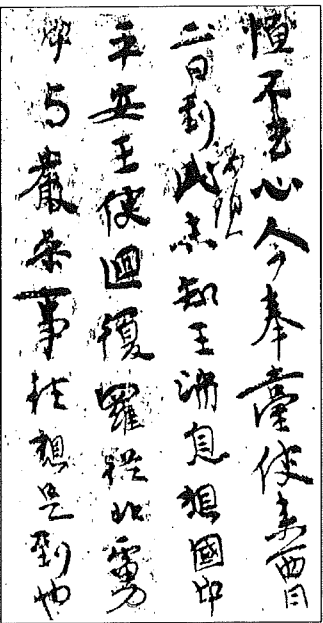 恒不去心今奉臺使来西月
二日到此海頭未知王消息想國中
平安王使迴復羅從北虜
中与嚴參事往想是到也